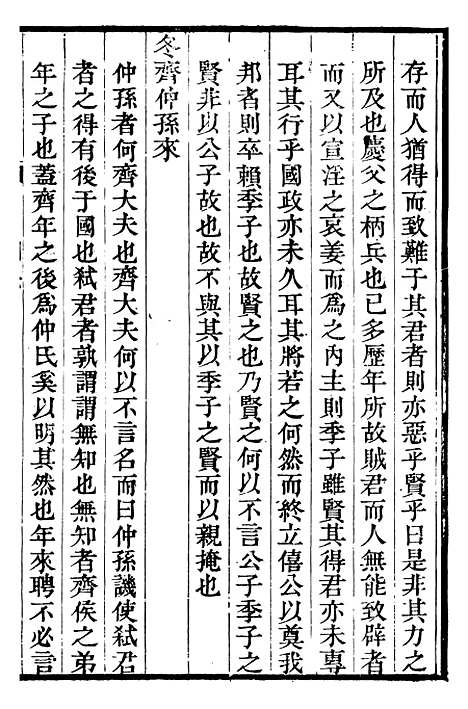 存而人猶得而致難于其君者則亦惡乎賢乎曰是非其力之
所及也慶父之柄兵也已多歷年所故賊君而人無能致辟者
而又以宣淫之哀姜而爲之內主則季子雖賢其得君亦未專
耳其行乎國政亦未久耳其將若之何然而終立僖公以奠我
邦者則卒賴季子也故賢之也乃賢之何以不言公子季子之
賢非以公子故也故不與其以季子之賢而以親掩也
冬齊仲孫來
仲孫者何齊大夫也齊大夫何以不言名而曰仲孫譏使弒君
者之得有後于國也弒君者孰謂謂無知也無知者齊侯之弟
年之子也蓋齊年之後爲仲氏奚以明其然也年來聘不必言